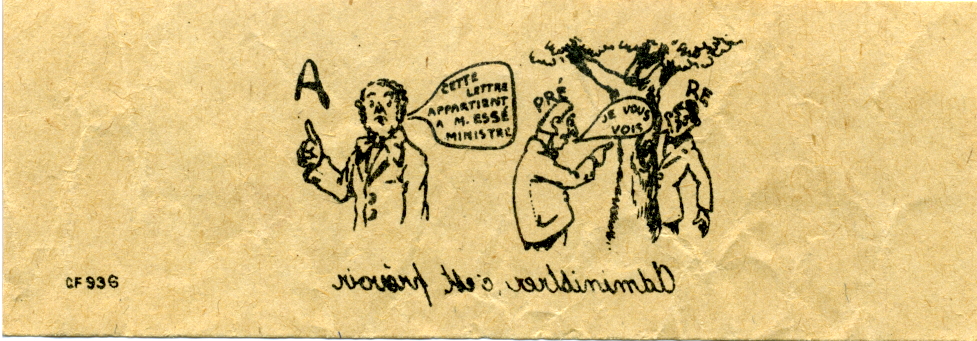 A
CETTE
LETTRE
APPARTIENT
A M. ESSÉ
MINISTRE
PRÉ
JE VOUS
VOIS
RE
Administrer, c'est prévoir
CF 936